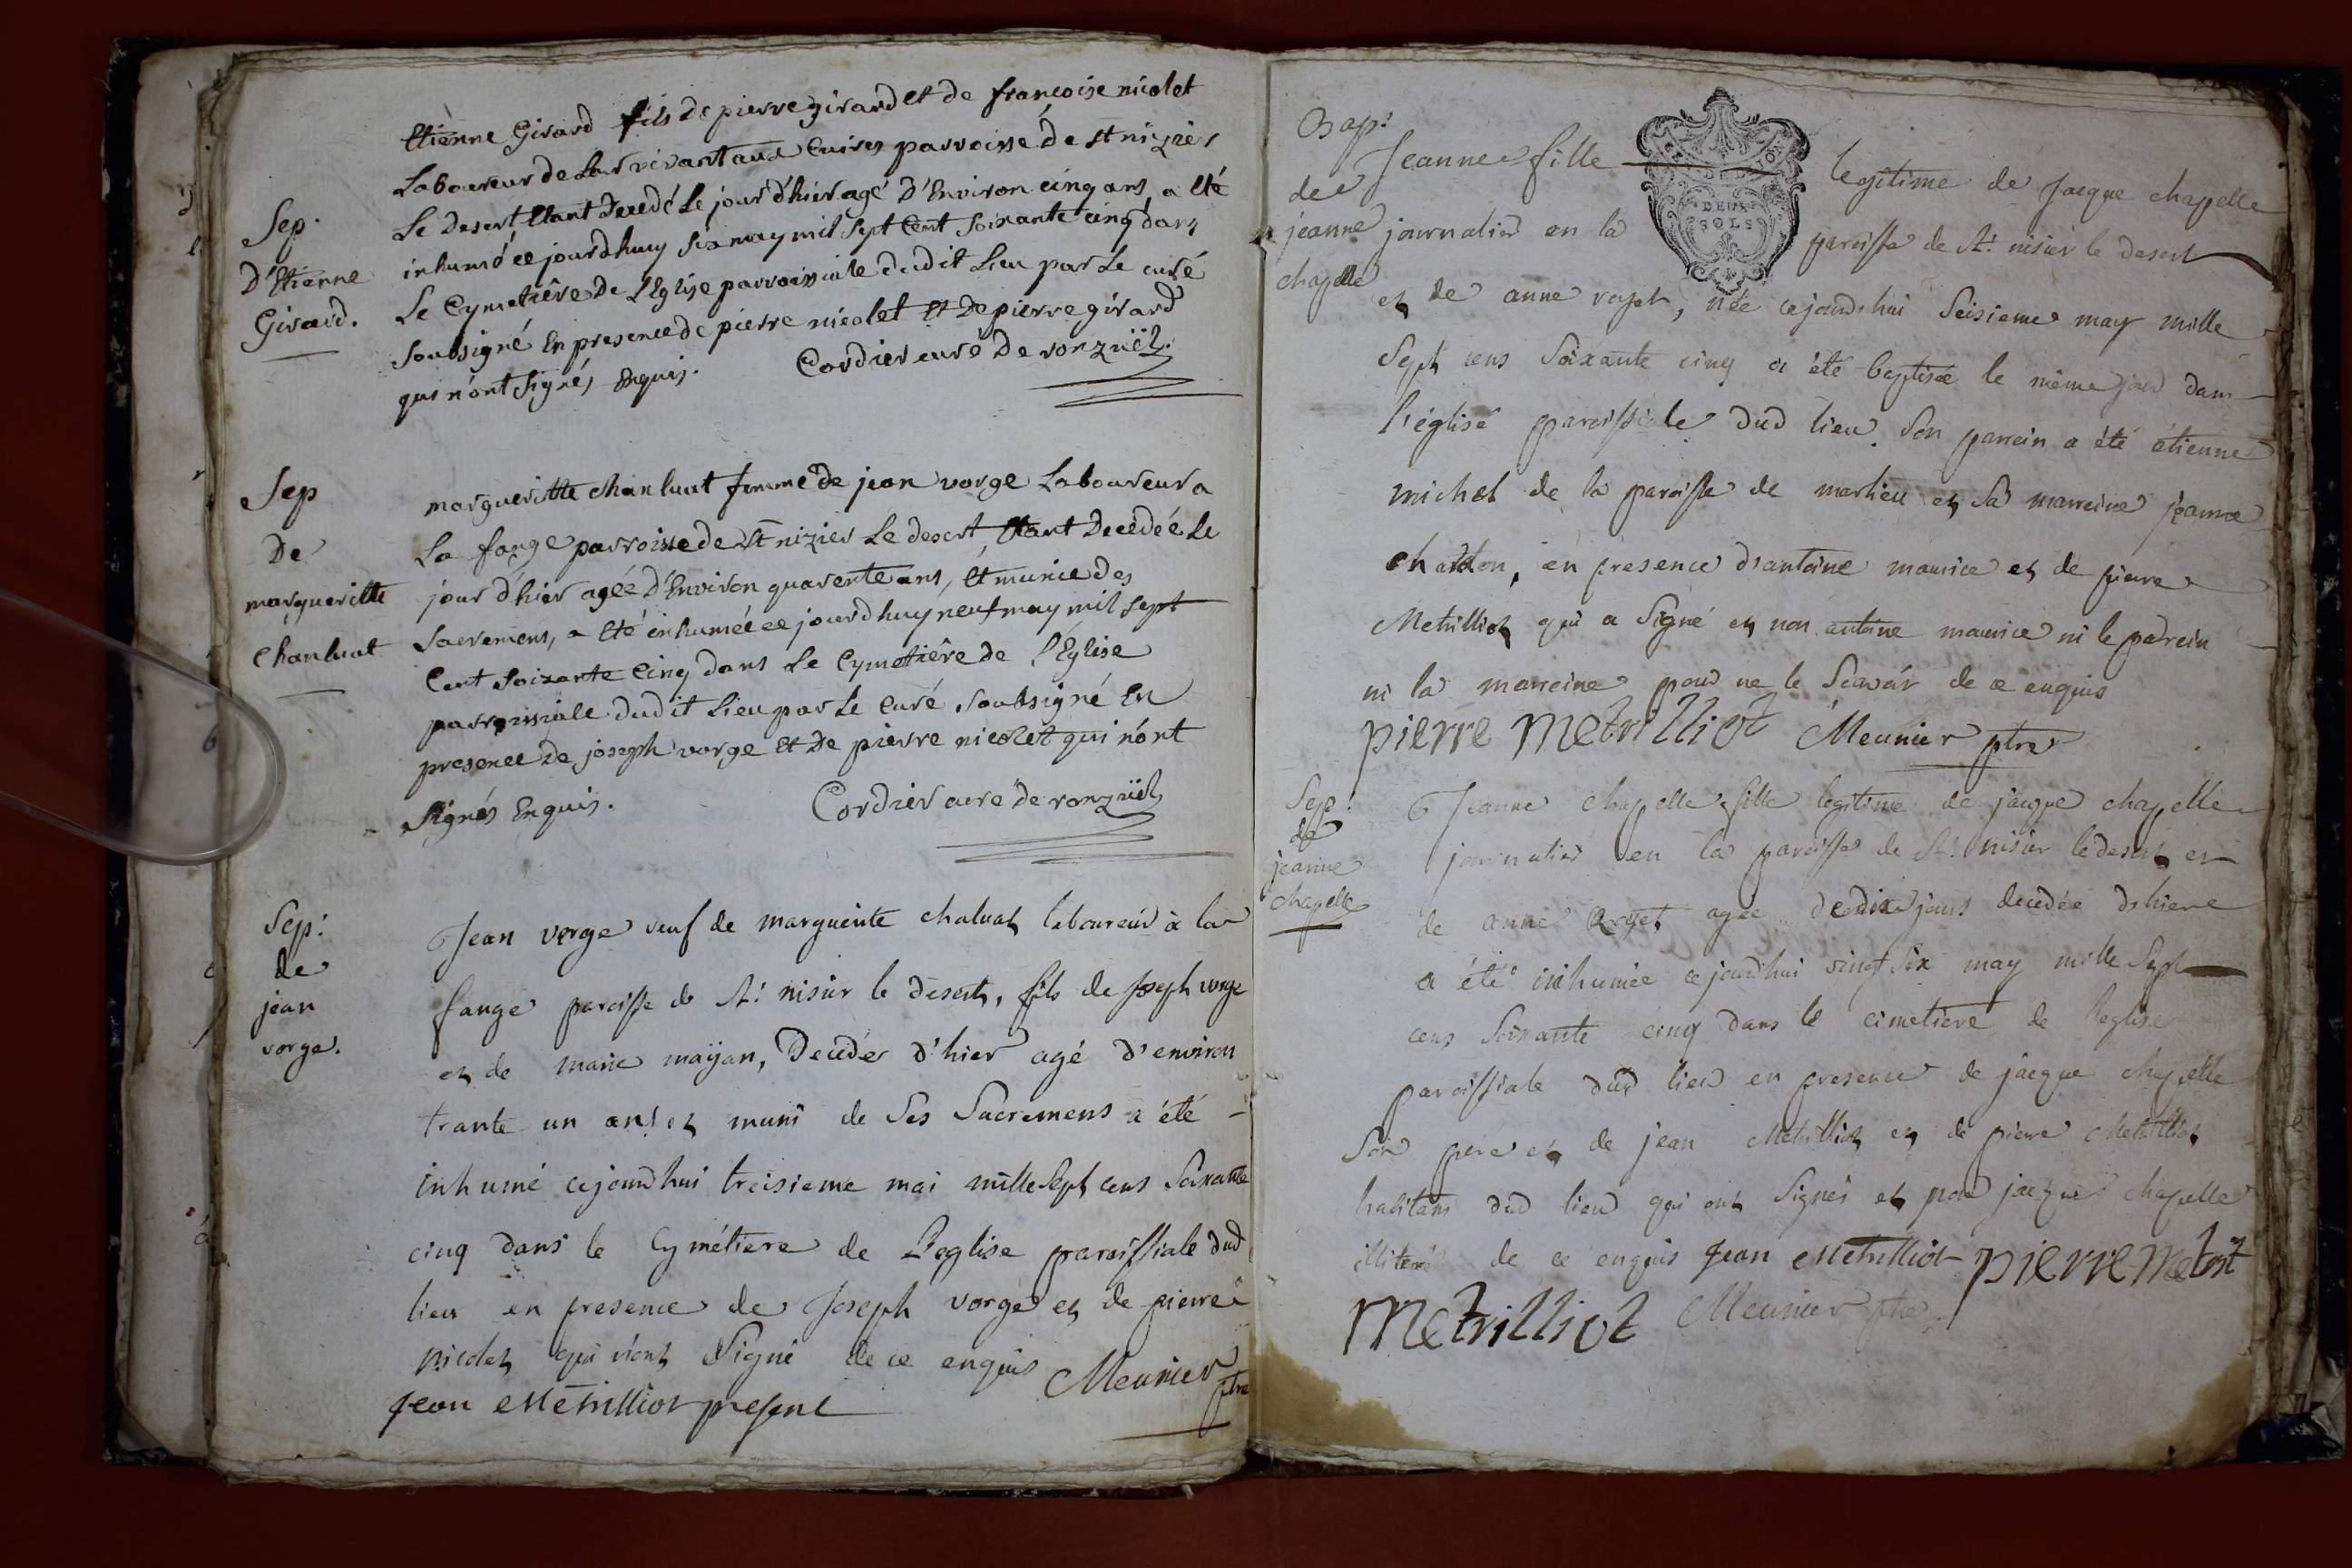 Sep.
D'Etienne
Girard.
Etienne Girard fils de pierre girard et de francoise nicolet
Laboureur de Leur vivant aux Cuires parroisse de st nizier
Le Desert Etant Decedé Le jour d'hier agé D'Environ cinq ans, a Eté
inhumé ce jourdhuy six may mil sept Cent Soixante cinq dans
Le Cymetière De L'Eglise parroissiale dudit Lieu par Le curé
soubsigné En presence de pierre nicolet Et De pierre girard
qui n'ont signés Enquis. Cordier curé De ronzuël
Sep
De
margueritte
Chanluat
margueritte chanluat femme de jean vorge Laboureur a
La fange parroisse de St nizier Le desert, Etant Decedée Le
jour d'hier agée d'Environ quarente ans, Et munie des
sacremens, a Eté inhumée ce jourdhuy neuf may mil sept
Cent soixante Cinq dans Le Cymetière de l'Eglise
parroissiale dudit Lieu par Le Curé soubsigné En
presence de joseph vorge Et De pierre nicolet qui n'ont
signés Enquis. Cordier curé de ronzuël
Sep:
de
jean
vorge.
Jean vorge veuf de marguerite chaluat laboureur à la
fange paroisse de St. nisier le desert, fils de Joseph vorge
et de marie mayan, Decéder d'hier agé d'environ
trante un ans et muni de Ses Sacremens a été
inhumé cejourdhui treisieme mai mille Sept cens Soixante
cinq dans le Cymétiere de L'eglise paroissiale dud
lieu en presence de Joseph vorge et de pierre
nicolet qui n'ont Signé de ce enquis Meunier
jean Metrilliot present ptre
Bap:
de
jeanne
chapelle
Jeanne fille legitime de Jacque chapelle
DEUX
SOLS
journalier en la paroisse de St. nisier le desert
et de anne royet, née cejourdhui Seisieme may mille
Sept cens Soixante cinq a été baptisée le même jour dans
l'église paroissiale dud lieu Son parrein a été étienne
michel de la paroisse de marlieu et Sa marreine jeanne
chardon, en presence d'antoine maurice et de pierre
Metrilliot qui a Signé et non antoine maurice ni le padrein
ni la marreine pour ne le Scavoir de ce enquis
pierre metrilliot Meunier ptre
Sep:
de
jeanne
chapelle
Jeanne chapelle fille legitime de jacque chapelle
journalier en la paroisse de St. nisier le desert et
de anne Royet agée de dix jours decedée d'hiere
a été inhumée cejourdhui vingt Six may mille Sept
cens Soixante cinq dans le cimetiere de l'eglise
paroissiale dud lieu en presence de jacque chapelle
Son pere et de jean Metrilliot et de pierre Metrilliot
habitans dud lieu qui ont Signés et non jacque chapelle
illiteré de ce enquis Jean Metrilliot pierre
metrilliot Meunier ptre